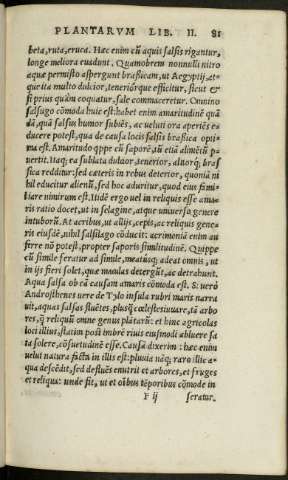 PLANTARVM LIB. II. 81
beta, ruta, eruca. Hæc enim cũ aquis salsis rigantur,
longe meliora euadunt. Quamobrem nonnulli nitro
aquæ permisto aspergunt brassicam, ut Aegyptij, at-
que ita multo dulcior, teneriórque efficitur, sicut &
si prius quàm coquatur, sale commaceretur. Omnino
salsugo cõmoda huic est: habet enim amaritudinẽ quã
dã, quã salsus humor subiẽs, ac ueluti ora aperiẽs e-
ducere potest, qua de causa locis salsis brassica opti-
ma est. Amaritudo q̃ppe cũ saporẽ, tũ etiã alimẽtũ p
uertit. Itaq; ea sublata dulcior, tenerior, altiorq́; bras
sica redditur: sed cæteris in rebus deterior, quoniã ni
hil educitur alienũ, sed hoc aduritur, quod eius fami-
liare nimirum est. Itidẽ ergo uel in reliquis esse ama-
ris ratio docet, ut in selagine, atque uniuerso genere
intuborũ. At acribus, ut allijs, cepis, ac reliquis gene-
ris eiusdẽ, nihil salsilago cõducit: acrimoniã enim au
ferre nõ potest, propter saporis similitudinẽ. Quippe
cũ simile feratur ad simile, meatúsq; adeat omnis, ut
in ijs fieri solet, quæ maculas detergũt, ac detrahunt.
Aqua salsa ob eã causam amaris cõmoda est. Si uerò
Androsthenes uere de Tylo insula rubri maris narra
uit, aquas salsas fluẽtes, plusq̃ cœlestes iuuare, tã arbo
res, q̃ reliquũ omne genus plãtarũ: et hinc agricolas
loci illius, statim post imbrẽ riuis eiusmodi abluere sa
ta solere, cõsuetudinẽ esse. Causã dixerim: hæc enim
uelut natura facta in illis est: pluuia náq; raro illic a-
qua descẽdit, sed defluẽs enutrit et arbores, et fruges
et reliqua: unde fit, ut et oĩbus tẽporibus cõmode in
F ij seratur.